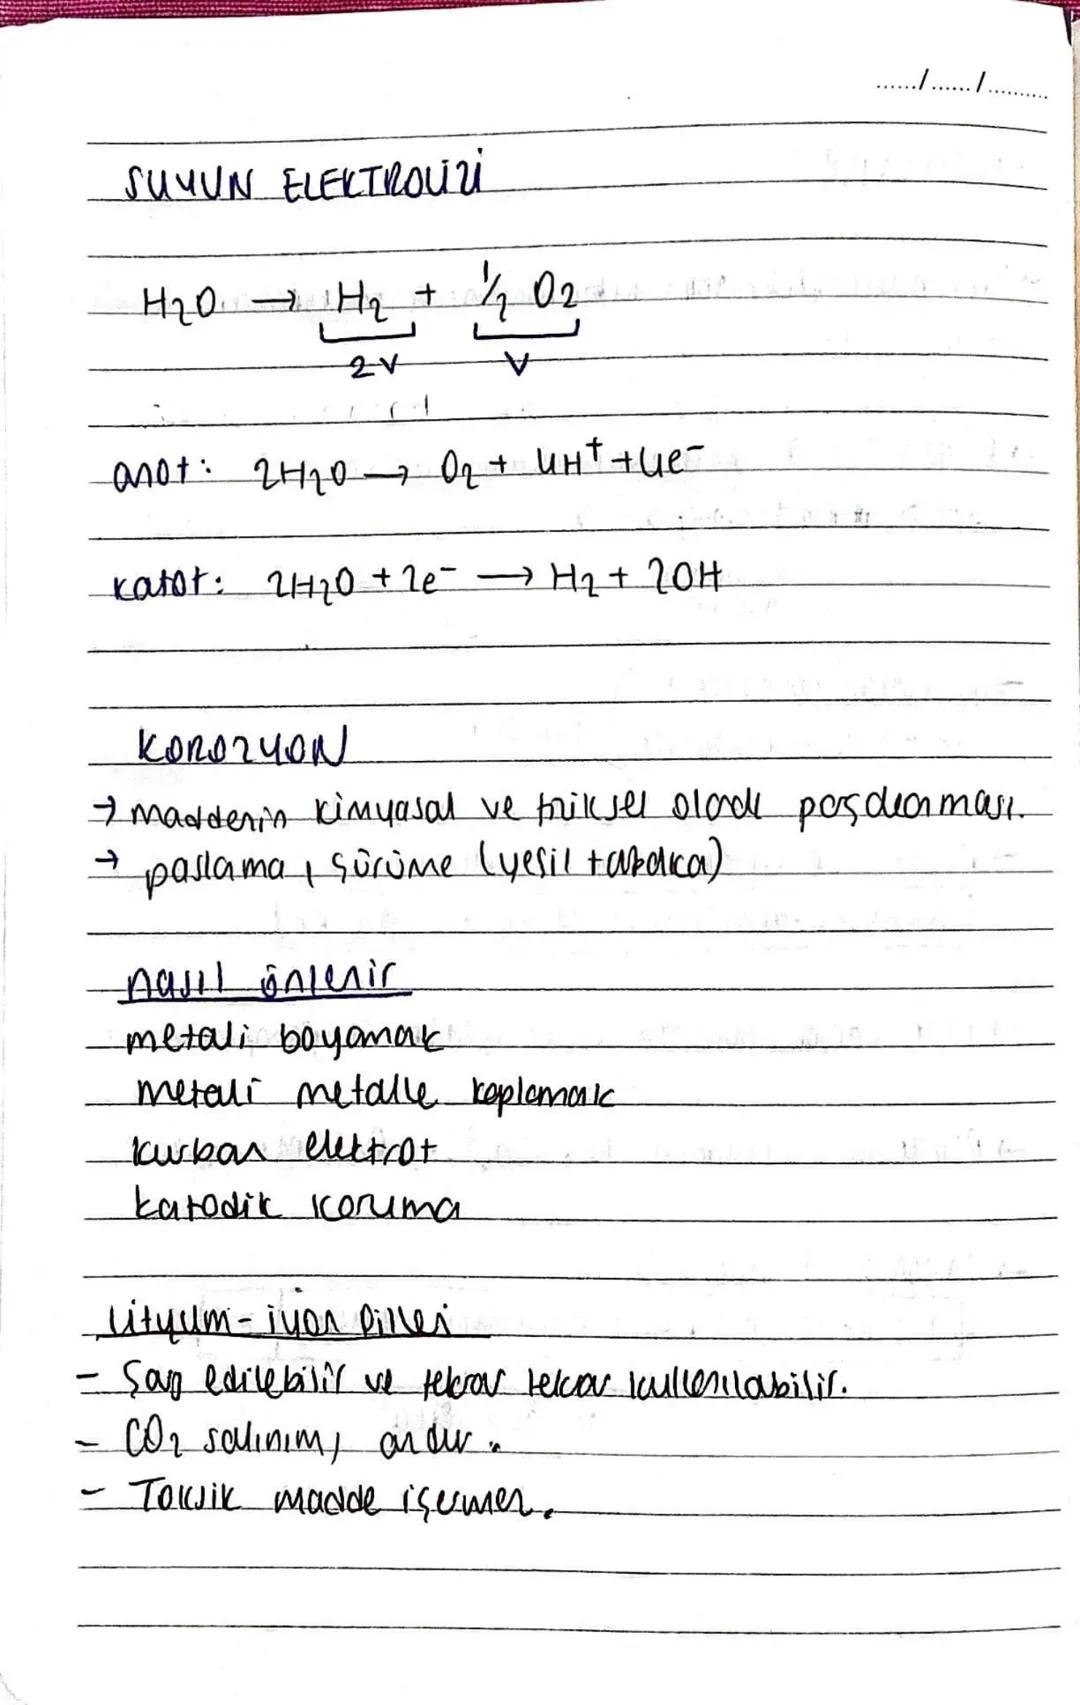 ....../....../..........
SUYUN ELEKTROLİZİ
H2O → H2 + 1/2 O2
2V V
anot: 2H2O → O2 + 4H+ + 4e-
katot: 2H2O + 2e- → H2 + 2OH
KOROZYON
→ maddenin kimyasal ve fiziksel olarak parçalanması.
→ paslama, çürüme (yeşil tabaka)
nasıl önlenir
metali boyamak
metali metalle kaplamak
kurban elektrot
katodik koruma
Lityum-iyon Pilleri
- Şarj edilebilir ve tekrar tekrar kullanılabilir.
- CO2 salınımı azdır.
- Toksik madde içermez.